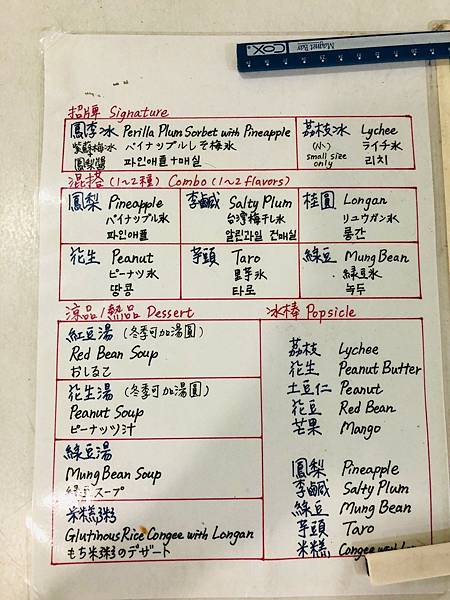 COX Magnet Bar
招牌 Signature
鳳李冰 Perilla Plum Sorbet with Pineapple
紫蘇梅冰 パイナップルしそ梅氷
鳳梨醬 파인애플+매실
荔枝冰 Lychee
(小) ライチ氷
small size only 리치
混搭 (1~2種) Combo (1~2 flavors)
鳳梨 Pineapple
パイナップル氷
파인애플
李鹹 Salty Plum
台湾梅干し氷
알린과일 건매실
桂圓 Longan
リュウガン氷
룡간
花生 Peanut
ピーナツ氷
땅콩
芋頭 Taro
里芋氷
타로
綠豆 Mung Bean
緑豆氷
녹두
涼品/熱品 Dessert
紅豆湯 (冬季可加湯圓)
Red Bean Soup
おしるこ
花生湯 (冬季可加湯圓)
Peanut Soup
ピーナッツ汁
綠豆湯
Mung Bean Soup
緑豆スープ
米糕粥
Glutinous Rice Congee with Longan
もち米粥のデザート
冰棒 Popsicle
荔枝 Lychee
花生 Peanut Butter
土豆仁 Peanut
花豆 Red Bean
芒果 Mango
鳳梨 Pineapple
李鹹 Salty Plum
綠豆 Mung Bean
芋頭 Taro
米糕 Congee with